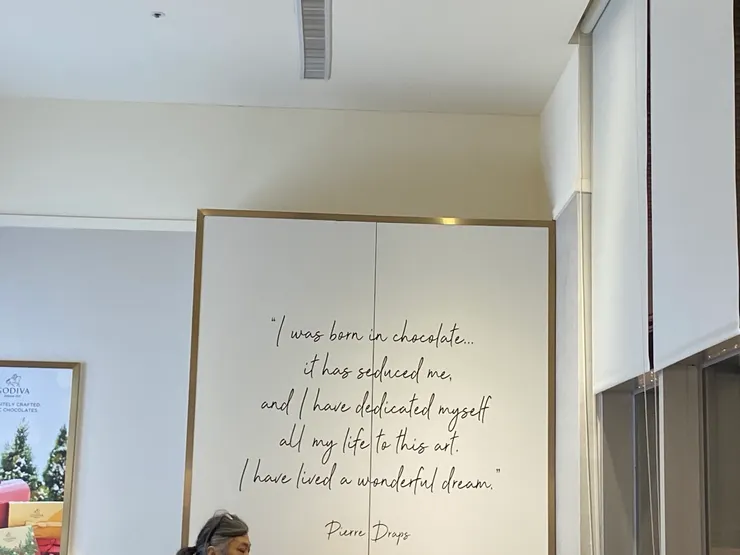 "I was born in chocolate...
it has seduced me,
and I have dedicated myself
all my life to this art.
I have lived a wonderful dream."
Pierre Draps
GODIVA
CRAFTED
CHOCOLATES